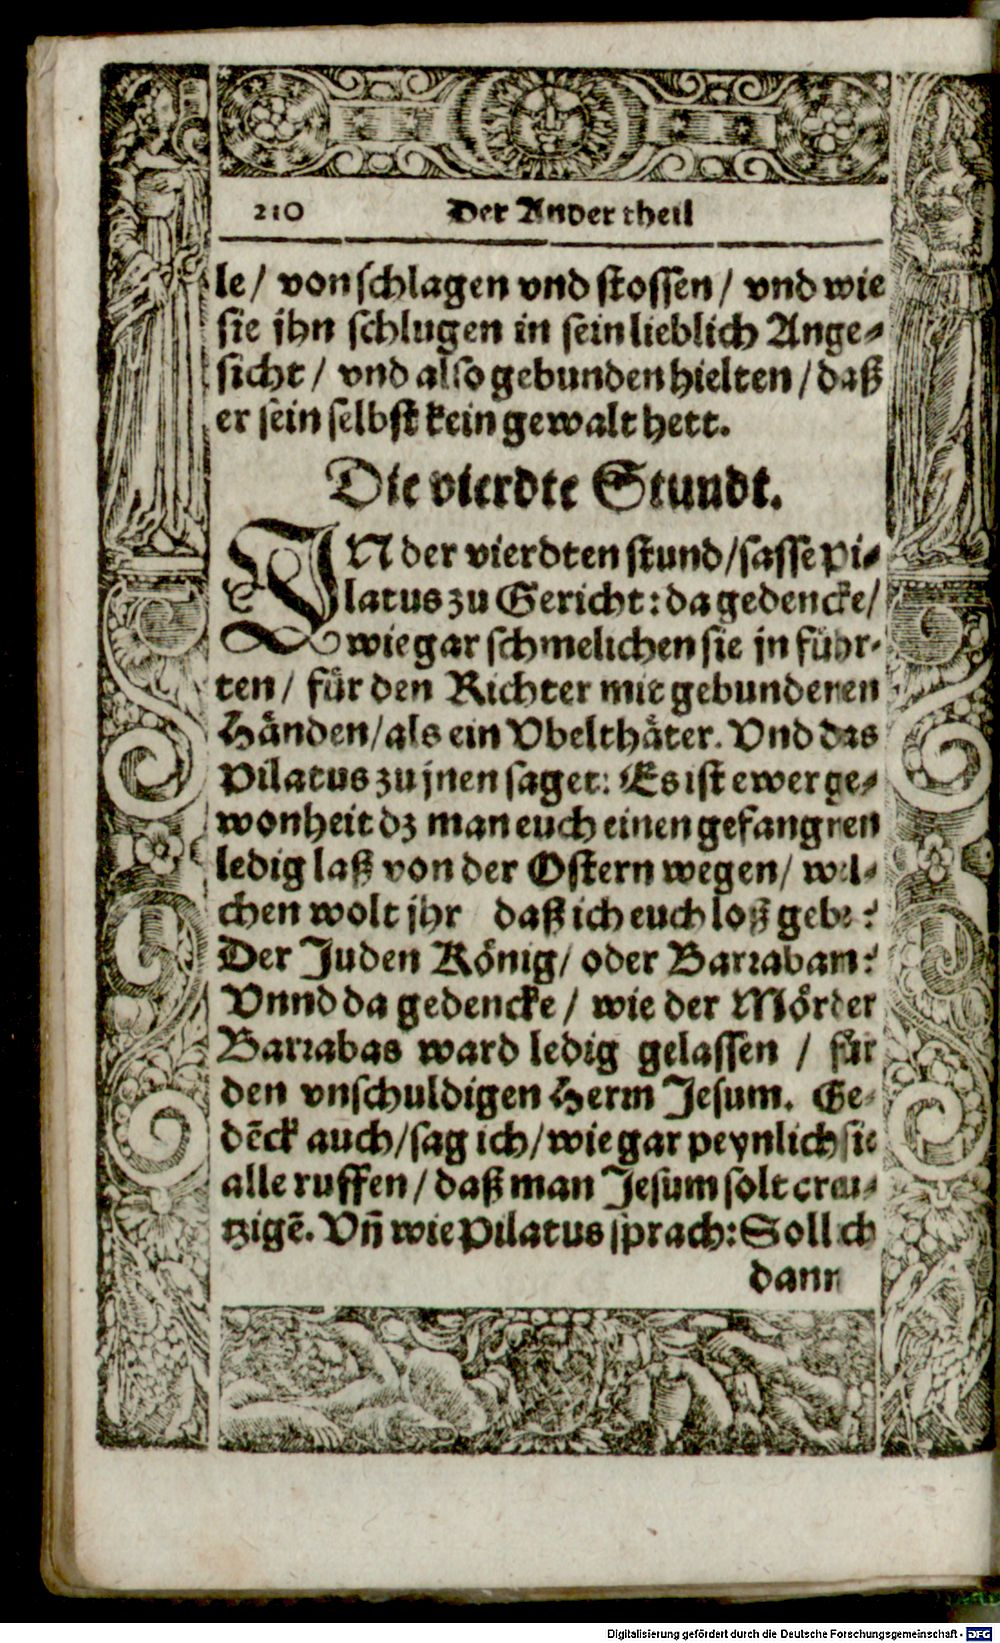 210 Der Ander theil
le / von schlagen vnd stossen / vnd wie
sie jhn schlugen in sein lieblich Ange-
sicht / vnd also gebunden hielten / daß
er sein selbst kein gewalt hett.
Die vierdte Stundt.
IN der vierdten stund / sasse Pi-
latus zu Gericht: da gedencke /
wie gar schmelichen sie jn führ-
ten / für den Richter mit gebundenen
Händen / als ein Vbelthäter. Vnd das
Pilatus zu jnen saget: Es ist ewer ge-
wonheit dz man euch einen gefangnen
ledig laß von der Ostern wegen / wel-
chen wolt jhr daß ich euch loß gebe?
Der Juden König / oder Barrabam?
Vnnd da gedencke / wie der Mörder
Barrabas ward ledig gelassen / für
den vnschuldigen Herrn Jesum. Ge-
dẽck auch / sag ich / wie gar peynlich sie
alle ruffen / daß man Jesum solt creu-
tzigẽ. Vñ wie Pilatus sprach: Soll ich
dann
Digitalisierung gefördert durch die Deutsche Forschungsgemeinschaft - DFG